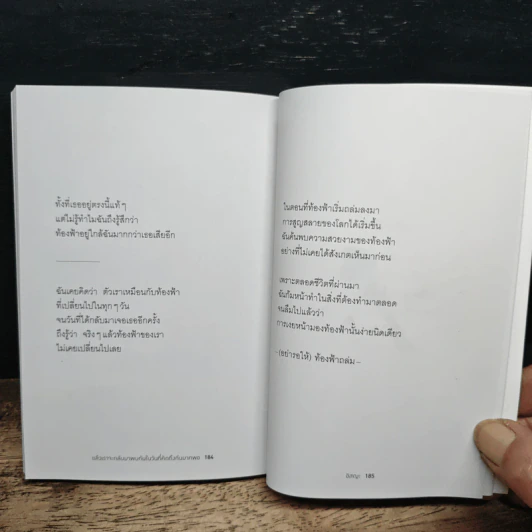 ทั้งที่เธออยู่ตรงนี้แท้ๆ
แต่ไม่รู้ทำไมฉันถึงรู้สึกว่า
ท้องฟ้าอยู่ใกล้ฉันมากกว่าเธอเสียอีก
ฉันเคยคิดว่า ตัวเราเหมือนกับท้องฟ้า
ที่เปลี่ยนไปในทุกๆ วัน
จนวันที่ได้กลับมาเจอเธออีกครั้ง
ถึงรู้ว่า จริงๆ แล้วท้องฟ้าของเรา
ไม่เคยเปลี่ยนไปเลย
แล้วเราจะกลับมาพบกันในวันที่คิดถึงกันมากพอ 184
ในตอนที่ท้องฟ้าเริ่มถล่มลงมา
การสูญสลายของโลกได้เริ่มขึ้น
ฉันค้นพบความสวยงามของท้องฟ้า
อย่างที่ไม่เคยได้สังเกตเห็นมาก่อน
เพราะตลอดชีวิตที่ผ่านมา
ฉันก้มหน้าทำในสิ่งที่ต้องทำมาตลอด
จนลืมไปแล้วว่า
การเงยหน้ามองท้องฟ้านั้นง่ายนิดเดียว
~(อย่ารอให้) ท้องฟ้าถล่ม~
185